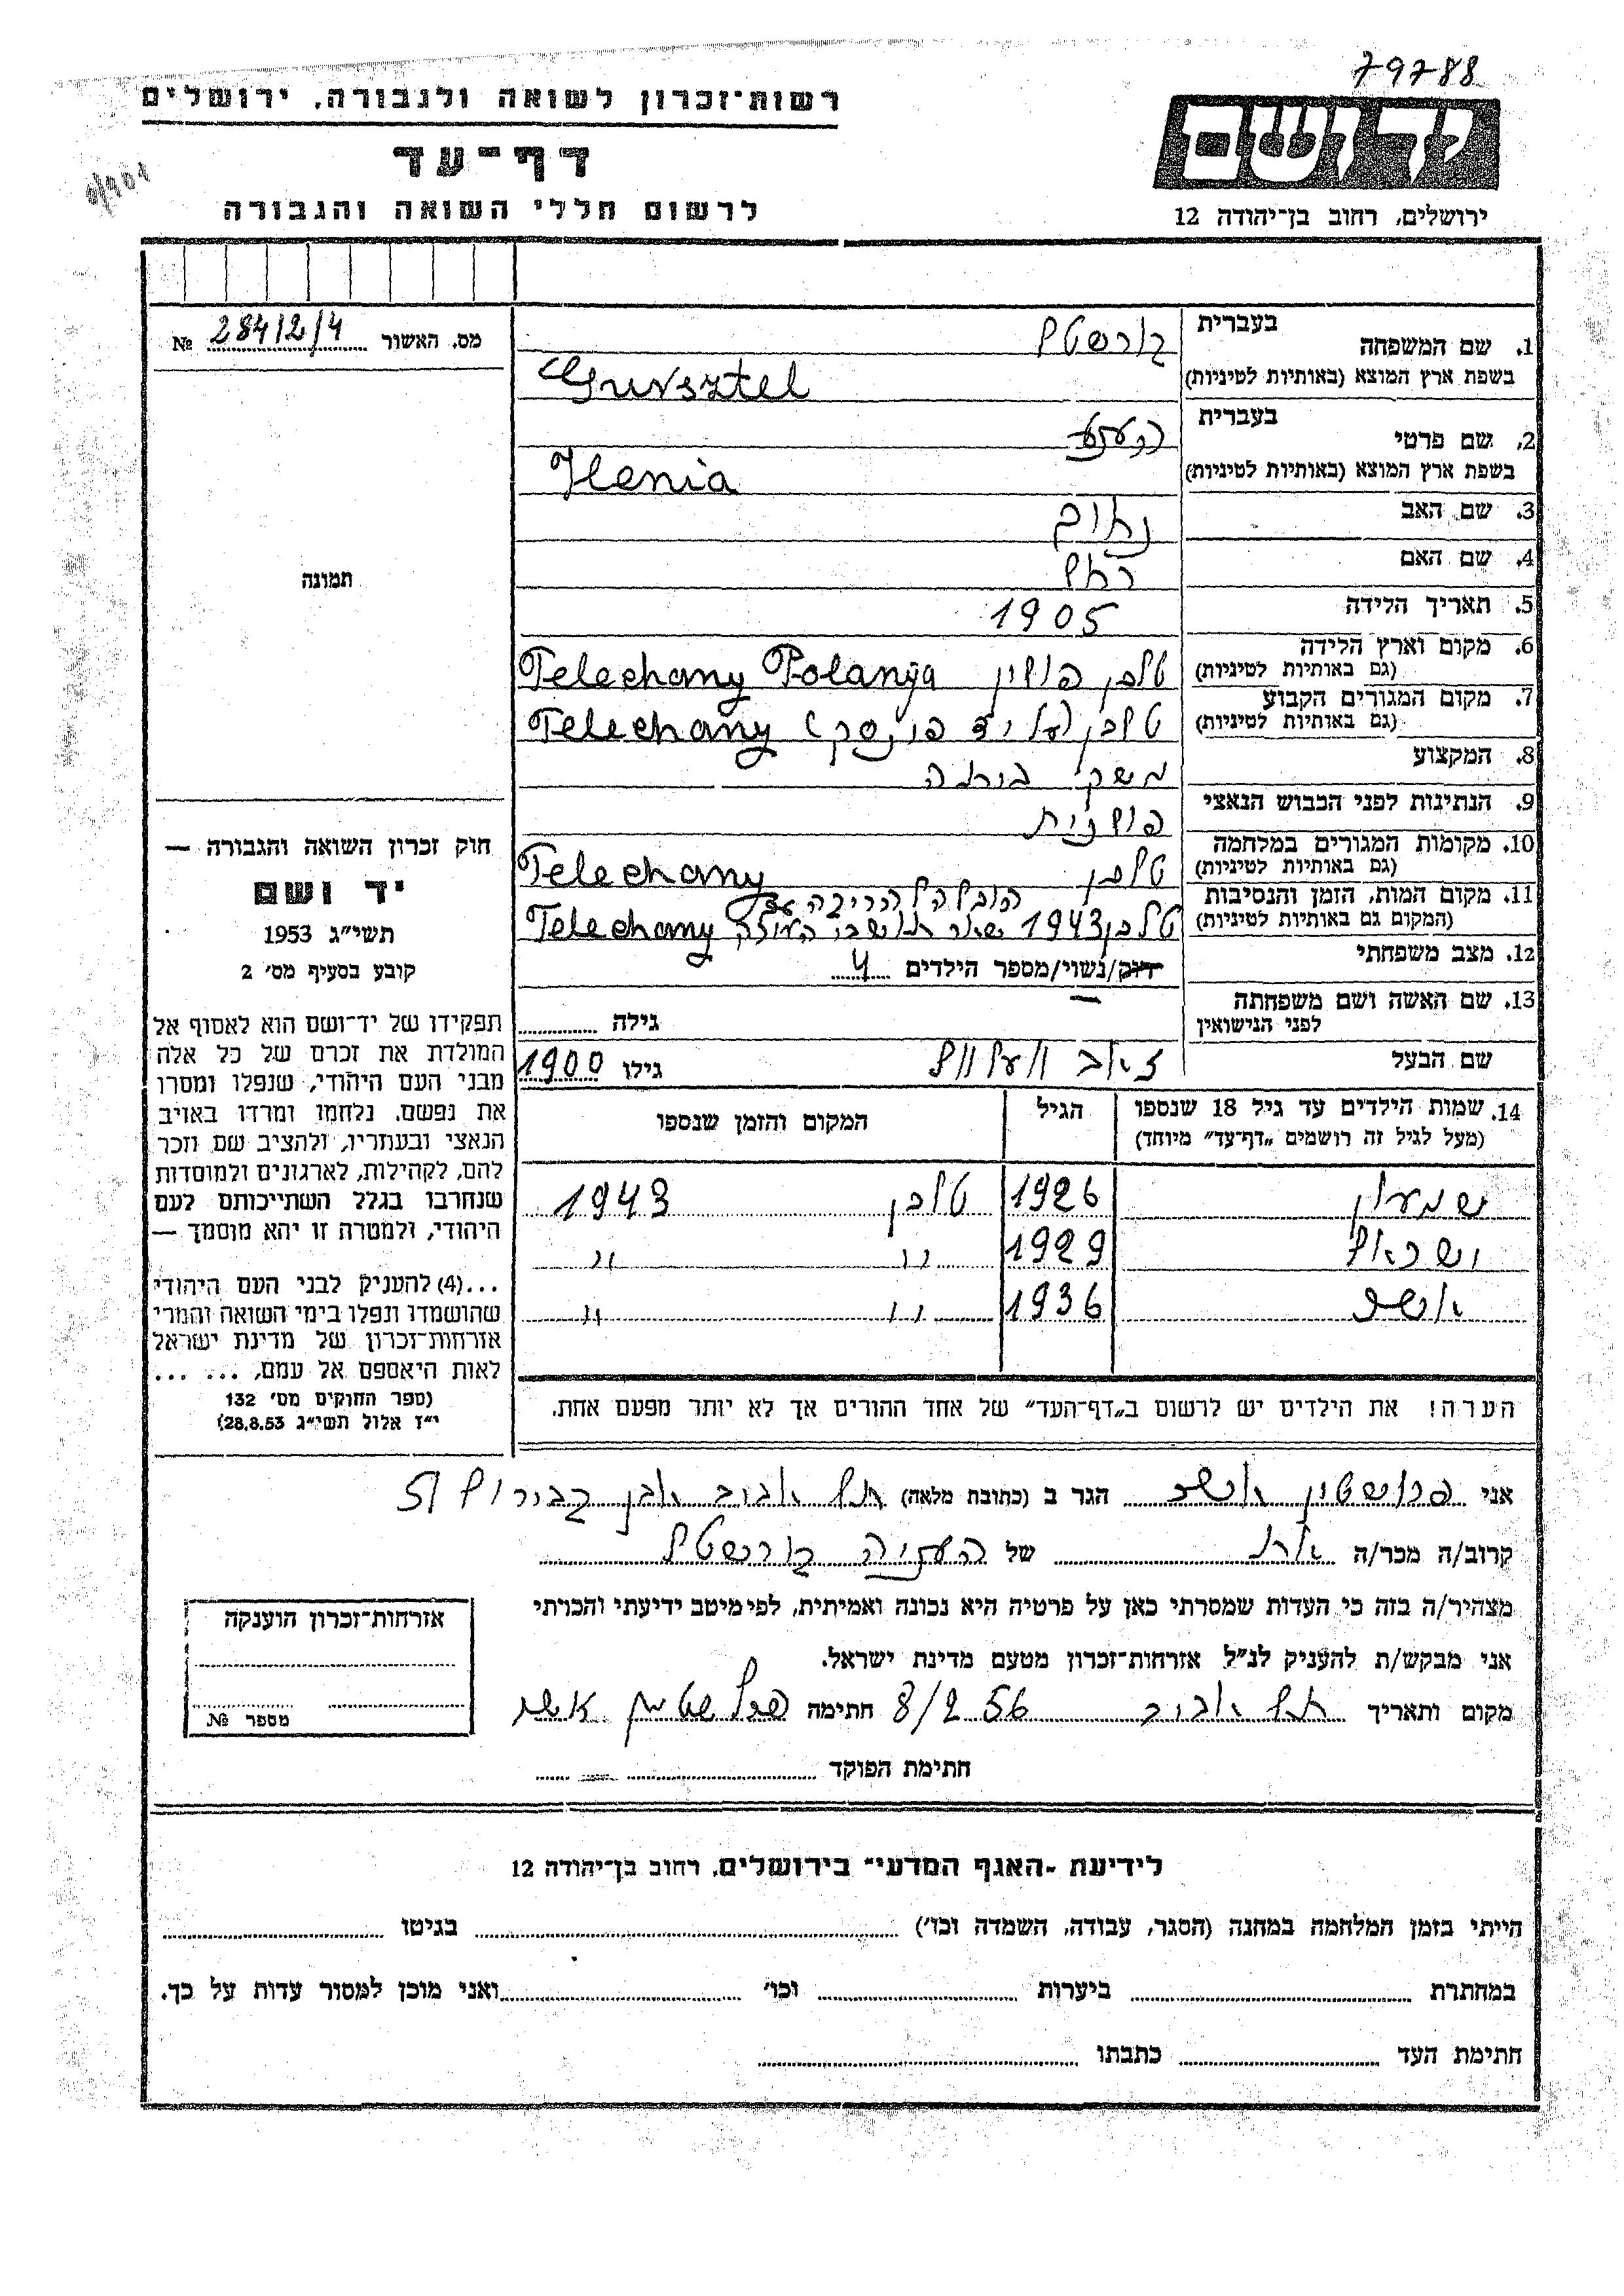 79788
רשות־זכרון לשואה ולגבורה, ירושלים
דף־עד
לרשום חללי השואה והגבורה
יד ושם
ירושלים, רחוב בן־יהודה 12
מס. האשור 28412/4 №
תמונה
1. שם המשפחה בעברית גורשטל
בשפת ארץ המוצא (באותיות לטיניות) Gursztel
2. שם פרטי בעברית
בשפת ארץ המוצא (באותיות לטיניות) Henia
3. שם האב נחום
4. שם האם רחל
5. תאריך הלידה 1905
6. מקום וארץ הלידה (גם באותיות לטיניות) טלכן פולין Telechany Polanija
7. מקום המגורים הקבוע (גם באותיות לטיניות) טלכן (על יד פינסק) Telechany
8. המקצוע משקי בורלה
9. הנתינות לפני הכבוש הנאצי פולנית
10. מקומות המגורים במלחמה (גם באותיות לטיניות) טלכן Telechany
11. מקום המות, הזמן והנסיבות (המקום גם באותיות לטיניות)
טלכן 1943 Telechany
12. מצב משפחתי רווק/נשוי/מספר הילדים 4
13. שם האשה ושם משפחתה לפני הנישואין גילה
שם הבעל זאב וועלוול גילו 1900
14. שמות הילדים עד גיל 18 שנספו (מעל לגיל זה רושמים „דף־עד” מיוחד) הגיל המקום והזמן שנספו
שמעון 1926 טלכן 1943
ישראל 1929 " "
אשר 1936 " "
הערה! את הילדים יש לרשום ב„דף־העד” של אחד ההורים אך לא יותר מפעם אחת.
חוק זכרון השואה והגבורה —
יד ושם
תשי״ג 1953
קובע בסעיף מס׳ 2
תפקידו של יד־ושם הוא לאסוף אל
המולדת את זכרם של כל אלה
מבני העם היהודי, שנפלו ומסרו
את נפשם, נלחמו ומרדו באויב
הנאצי ובעוזריו, ולהציב שם וזכר
להם, לקהילות, לארגונים ולמוסדות
שנחרבו בגלל השתייכותם לעם
היהודי, ולמטרה זו יהא מוסמך —
...(4) להעניק לבני העם היהודי
שהושמדו ונפלו בימי השואה והמרי
אזרחות־זכרון של מדינת ישראל
לאות היאספם אל עמם, ... ...
(ספר החוקים מס׳ 132
י״ז אלול תשי״ג 28.8.53)
אני אשר הגר ב (כתובת מלאה) תל אביב אבן גבירול
קרוב/ה מכר/ה של העניה גורשטל
מצהיר/ה בזה כי העדות שמסרתי כאן על פרטיה היא נכונה ואמיתית, לפי מיטב ידיעתי והכרתי
אני מבקש/ת להעניק לנ״ל אזרחות־זכרון מטעם מדינת ישראל.
מקום ותאריך תל אביב 8/2 56 חתימה אשר
חתימת הפוקד
אזרחות־זכרון הוענקה
מספר №
לידיעת ״האגף המדעי״ בירושלים, רחוב בן־יהודה 12
הייתי בזמן המלחמה במחנה (הסגר, עבודה, השמדה וכו׳) בגיטו
במחתרת ביערות וכו׳ ואני מוכן למסור עדות על כך.
חתימת העד כתבתו